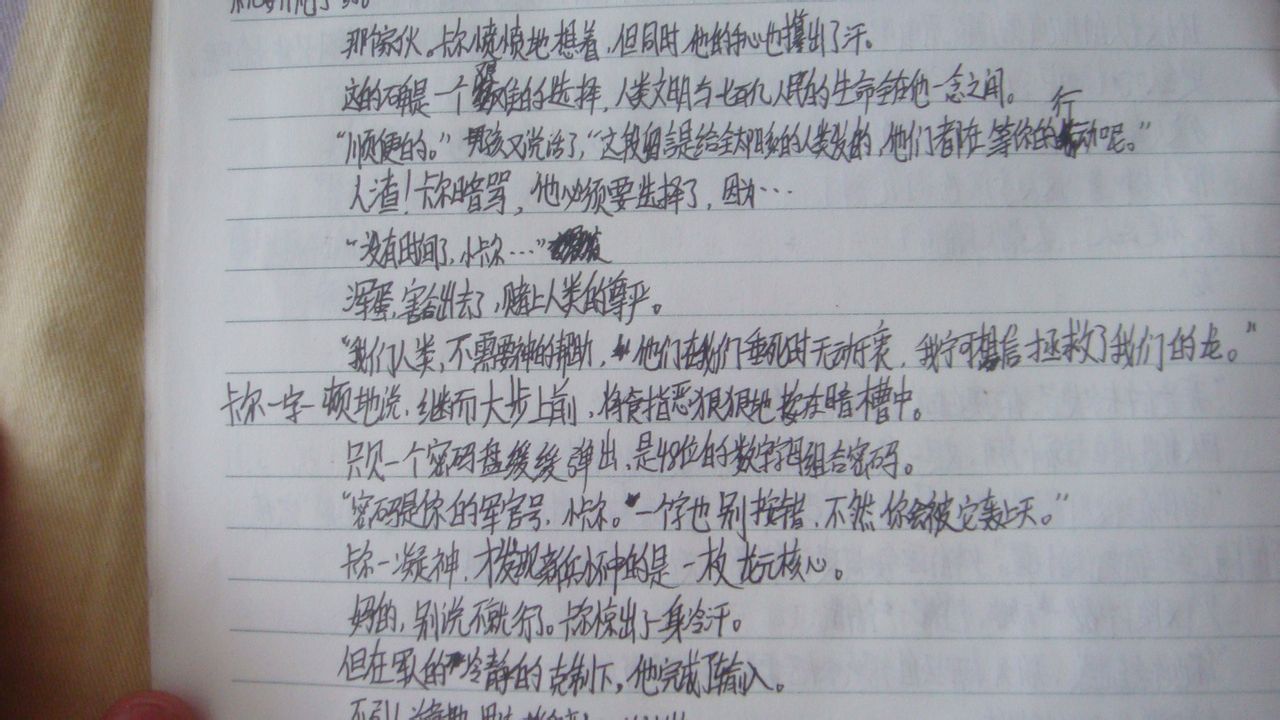 那家伙。卡尔愤愤地想着,但同时他的手心也攥出了汗。
这的确是一个艰难的选择,人类文明与七百亿人民的生命全在他一念之间。
“顺便的。”男孩又说话了,“这段留言是给全太阳系的人类发的,他们都在等你的行动呢。”
人渣!卡尔暗骂,他必须要选择了,因为…
“没有时间了,小卡尔…”
浑蛋,害合出去了,赌上人类的尊严。
“我们人类,不需要神的帮助,他们在我们垂死时无动于衷,我宁可相信拯救了我们的龙。”
卡尔一字一顿地说,继而大步上前,将食指恶狠狠地按在暗槽中。
只见一个密码盘缓缓弹出,是48位的数字字母组合密码。
“密码是你的军官号,小卡尔。一个字也别按错,不然你会被它轰上天。”
卡尔一凝神,才发现老兵怀中的是一枚龙元核心。
妈的,别说不就行了。卡尔惊出了一身冷汗。
但在军人的冷静的克制下,他完成了输入。